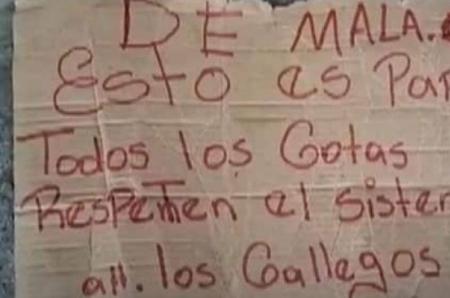 DE MALA.
Esto es Par
Todos los Gotas
Respeten el sister
att. los Gallegos